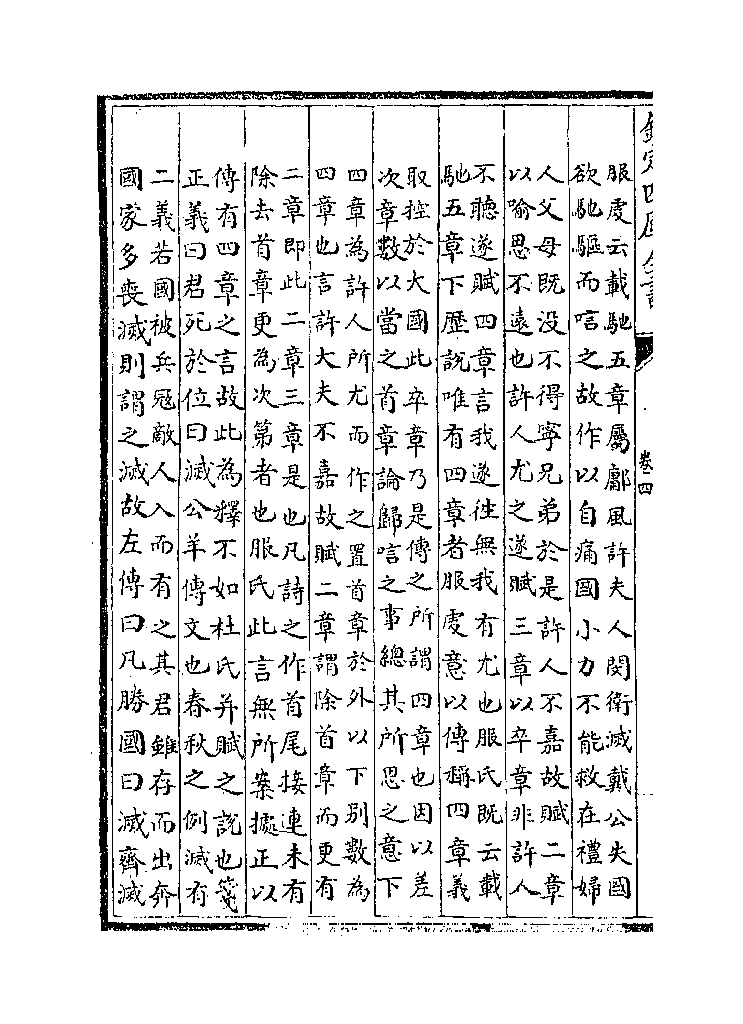 欽定四庫全書
卷四
服虔云載馳五章屬鄘風許夫人閔衛滅戴公失國
欲馳驅而唁之故作以自痛國小力不能救在禮婦
人父母既没不得寧兄弟於是許人不嘉故賦二章
以喻思不遠也許人尤之遂賦三章以卒章非許人
不聽遂賦四章言我遂往無我有尤也服氏既云載
馳五章下歴說唯有四章者服虔意以傳稱四章義
取控於大國此卒章乃是傳之所謂四章也因以差
次章數以當之首章論歸唁之事總其所思之意下
四章為許人所尤而作之置首章於外以下别數為
四章也言許大夫不嘉故賦二章謂除首章而更有
二章即此二章三章是也凡詩之作首尾接連未有
除去首章更為次第者也服氏此言無所案據正以
傳有四章之言故此為釋不如杜氏并賦之說也箋
正義曰君死於位曰滅公羊傳文也春秋之例滅有
二義若國被兵冦敵人入而有之其君雖存而出奔
國家多喪滅則謂之滅故左傳曰凡勝國曰滅齊滅